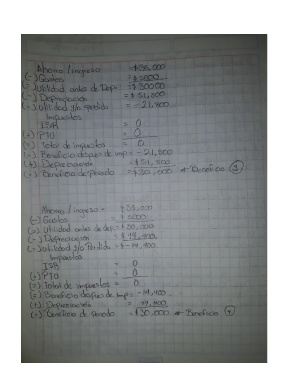 Ahorro / ingreso = $35,000
(-) Gastos = $5000
(=) Utilidad antes de Dep = $30000
(-) Depreciación = $51,800
(=) Utilidad y/o perdida = -21,800
Impuestos
ISR = 0
(+) PTU = 0
(=) Total de impuestos = 0
(=) Beneficio despues de imp = -21,800
(+) Depreciación = $51,800
(=) Beneficio de periodo = $30,000 Beneficio 1
Ahorro / ingreso = $35,000
(-) Gastos = $5000
(=) Utilidad antes de dep = $30,000
(-) Depreciación = $49,400
(=) Utilidad y/o Pérdida = $-19,400
Impuestos
ISR = 0
(+) PTU = 0
(=) Total de impuestos = 0
(=) Beneficio despues de imp = -19,400
(+) Depreciación = 49,400
(=) Beneficio de periodo = $30,000 Beneficio